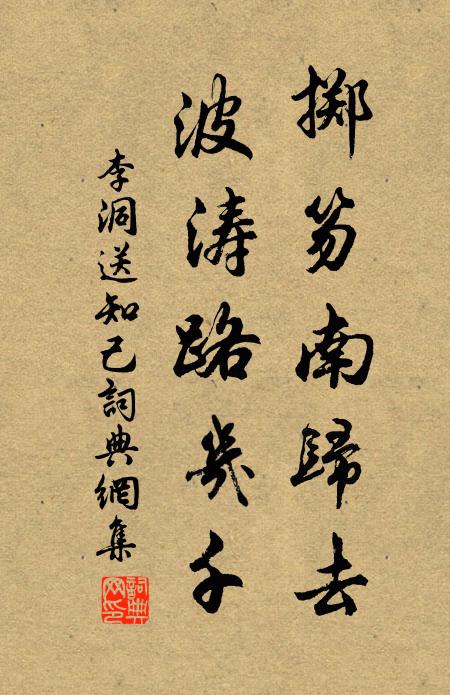 掷笏南歸去
波涛路幾千
李洞送知己詞典網集
詞典網印